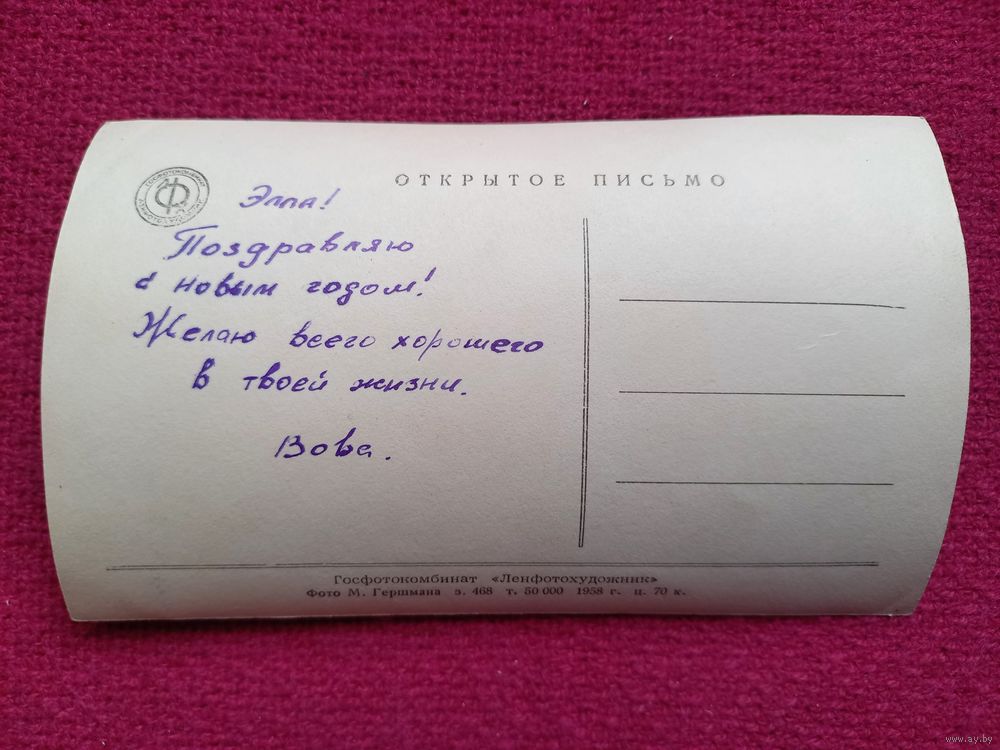 ОТКРЫТОЕ ПИСЬМО
ГОСФОТОКОМБИНАТ
ЛЕНФОТОХУДОЖНИК
Элла!
Поздравляю
с новым годом!
Желаю всего хорошего
в твоей жизни.
Вова.
Госфотокомбинат «Ленфотохудожник»
Фото М. Гершмана з. 468 т. 50 000 1958 г. ц. 70 к.
www.ay.by